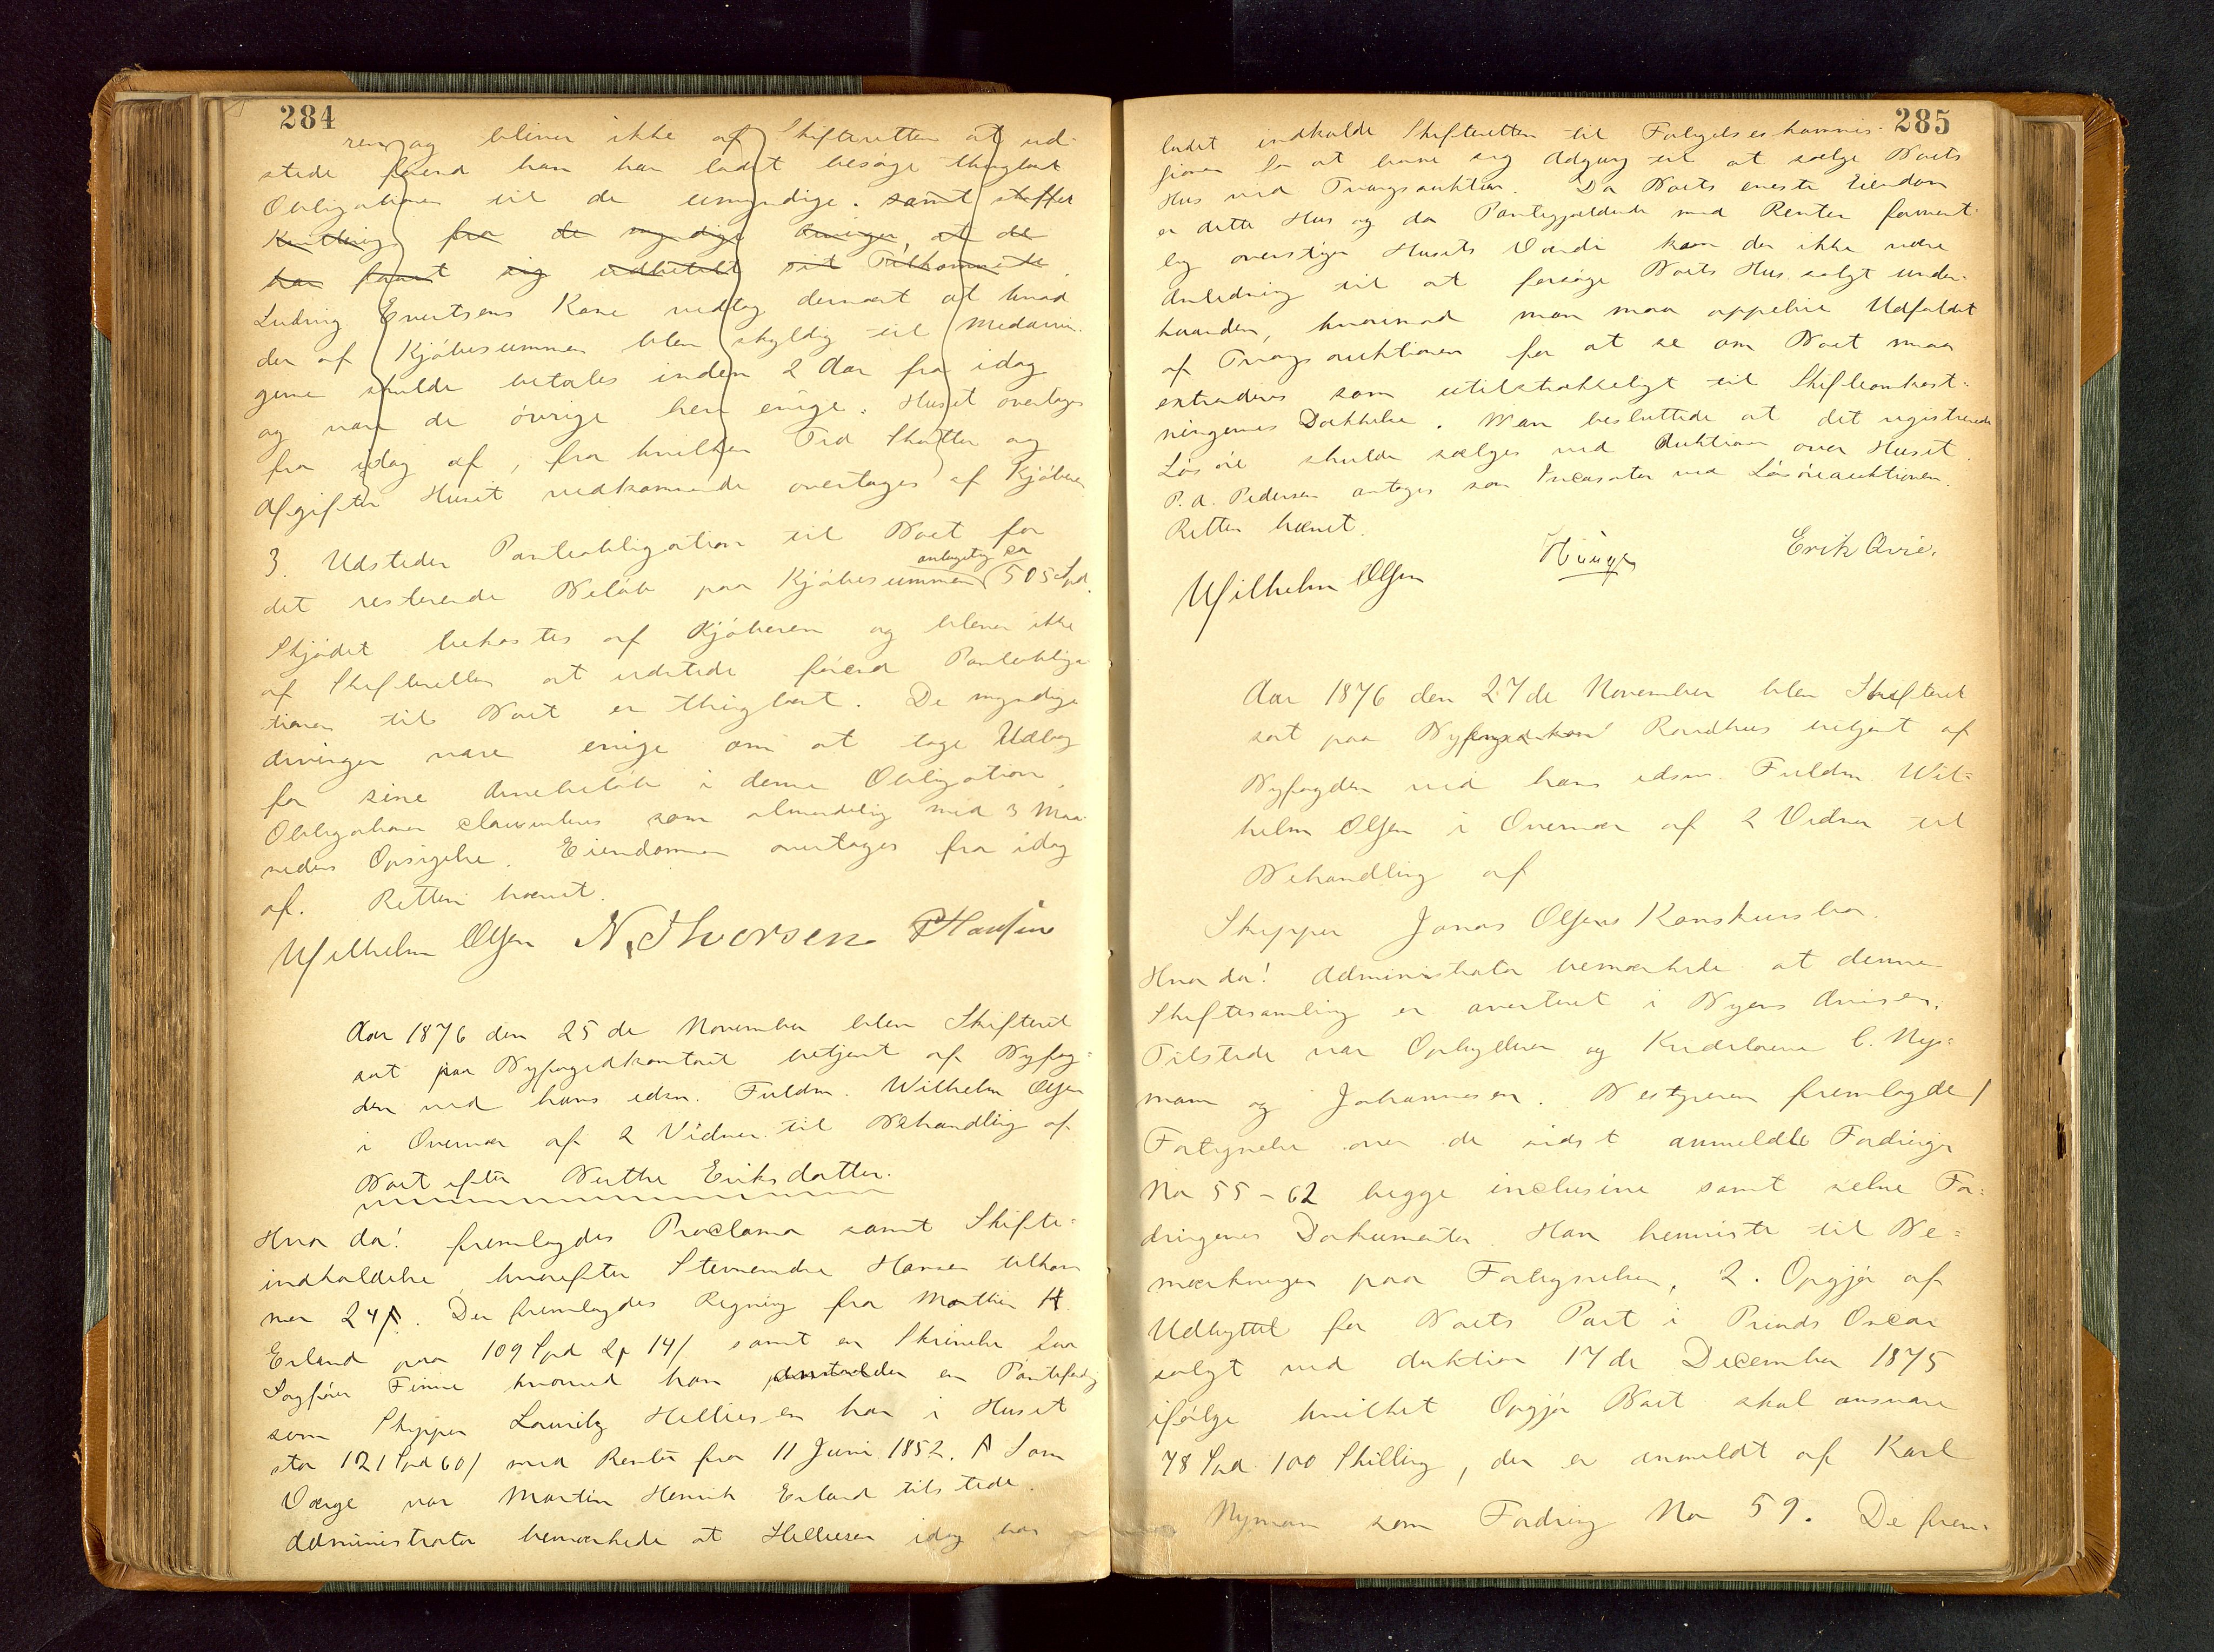 284
ren og bliver ikke af Skifteretten at ud-
stede førend han har ladet besøge thinglæst
Obligationen til de umyndige. samt skaffet
Kvittering fra de myndige Arvinger, at de
har faaet sig udbetalt sit Tilkommende.
Ludvig Evertsens Kone vedtog dernæst at hvad
der af Kjøbesummen blev skyldig til Medarvin-
gerne skulde betales inden 2 Aar fra idag
og vare de øvrige heri enige. Huset overtages
fra idag af, fra hvilken Tid Skatter og
Afgifter Huset vedkommende overtages af Kjøberen
3. Udsteder Panteobligation til Boet for
antagelig ca
det resterende Beløb paa Kjøbesummen (505 Spd.
Skjødet bekostes af Kjøberen og bliver ikke
af Skifteretten at udstede førend Pantobliga
tionen til Boet er thinglæst. De myndige
Arvinger vare enige om at tage Udlæg
for sine Arvebeløb i denne Obligation.
Obligationen clausuleres som almindelig med 3 Maa-
neders Opsigelse. Eiendommen overtages fra idag
af. Retten hævet.
Wilhelm Olsen N. Thorsen P Hansen
Aar 1876 den 25de November blev Skifteret
sat paa Byfogedkontoret betjent af Byfog-
den ved hans edsv. Fuldm. Wilhelm Olsen
i Overvær af 2 Vidner til Behandling af
Boet efter Berthe Eriksdatter.
Hvor da! fremlagdes Proclama samt Skifte-
indkaldelse, hvorefter Stevnevidne Hansen tilkom
mer 24 s. Der fremlagdes Regning fra Marthin H.
Erland paa 109 Spd 2 14/ samt en Skrivelse fra
Sagfører Finne hvorved han anmelder en Pantefordrg
som Skipper Lauritz Helliesen har i Huset
stor 121 Spd 60/ med Renter fra 11 Juni 1852. Som
Værge var Martin Henrik Erland tilstede.
Administrator bemærkede at Helliesen idag har
285
ladet indkalde Skifteretten til Forligelseskommis-
sionen for at bane sig Adgang til at sælge Boets
Hus ved Tvangsauktion. Da Boets eneste Eiendom
er dette Hus og da Pantegjælden med Renter forment-
lig overstiger Husets Værdi kan der ikke være
Anledning til at forsøge Boets Hus solgt under-
haanden, hvorimod man maa oppebie Udfaldet
af Tvangsauktionen for at se om Boet maa
extraderes som utilstrækkeligt til Skifteomkost-
ningernes Dækkelse. Man besluttede at det registrerede
Løsøre skulde sælges ved Auktion over Huset.
P. A. Pedersen antages som Incasator ved Løsøreauktionen.
Retten hævet.
Wilhelm Olsen Erik Qvie.
Aar 1876 den 27de November blev Skifteret
sat paa Byfogedkont Raadhus betjent af
Byfogden ved hans edsv. Fuldm. Wil-
helm Olsen i Overvær af 2 Vidner til
Behandling af
Skipper Jonas Olsens Konskursbo.
Hvor da! Administrator bemærkede at denne
Skiftesamling er averteret i Byens Aviser.
Tilstede var Opbyderen og Kreditorerne C. Ny-
man og Johannesen. Bestyreren fremlagde 1
Fortegnelse over de sidst anmeldte Fordringer
No 55-62 begge inclusive samt selve For-
dringernes Dokumenter. Han henviste til Be-
mærkninger paa Fortegnelsen, 2. Opgjør af
Udbyttet for Boets Part i Prinds Oscar
solgt ved Auktion 17de December 1875
ifølge hvilket Opgjør Boet skal ansvare
78 Spd. 100 Skilling, der er anmeldt af Karl
Nyman som Fordring No 59. De frem-